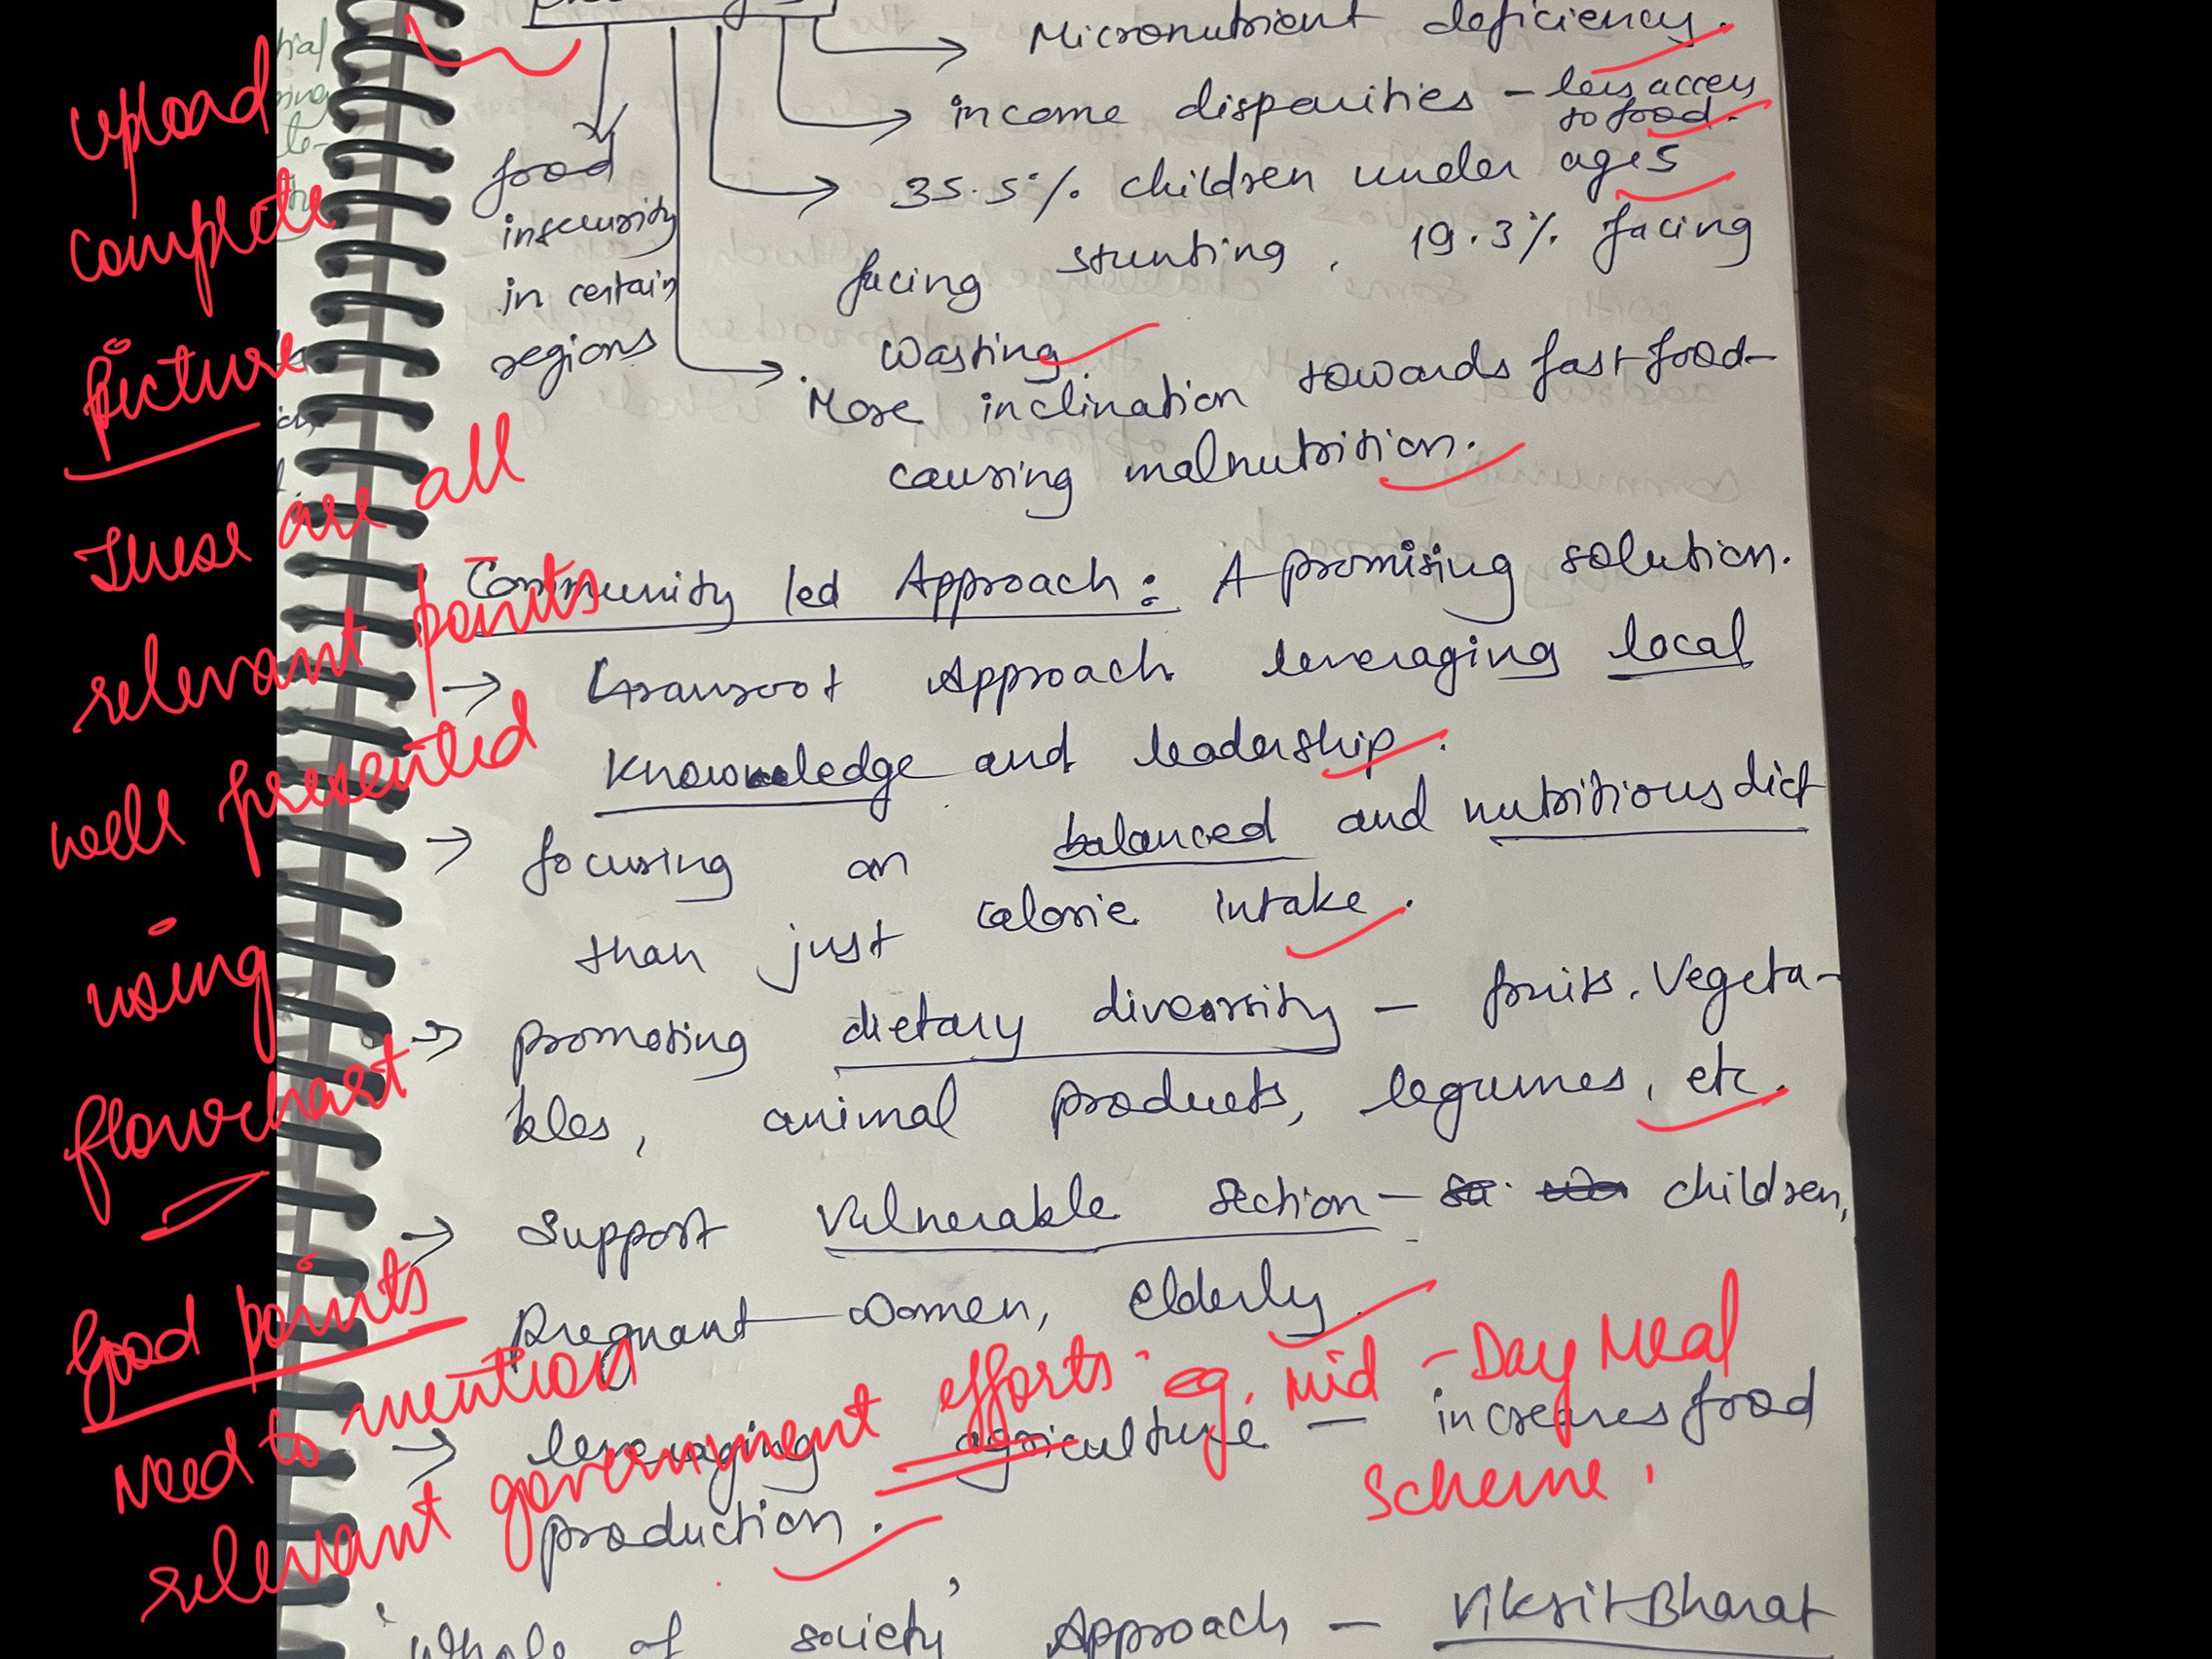 Micronutrient deficiency.
income disparities - less access
to food.
35.5% children under age 5
facing stunting, 19.3% facing
wasting
food
insecurity
in certain
regions
More inclination towards fast food
causing malnutrition.
Community led Approach: A promising solution.
→ Grassroot Approach leveraging local
knowledge and leadership.
→ focusing on balanced and nutritious diet
than just calorie intake.
→ promoting dietary diversity - fruits, Vegeta-
bles, animal products, legumes, etc.
→ Support vulnerable section - children,
pregnant women, elderly
→ leveraging agriculture - increases food
production.
'whole of society' Approach - Viksit Bharat
upload
complete
picture
These are all
relevant points
well presented
using
flowchart
Good points
Need to mention
relevant government efforts eg. Mid-Day Meal
Scheme.